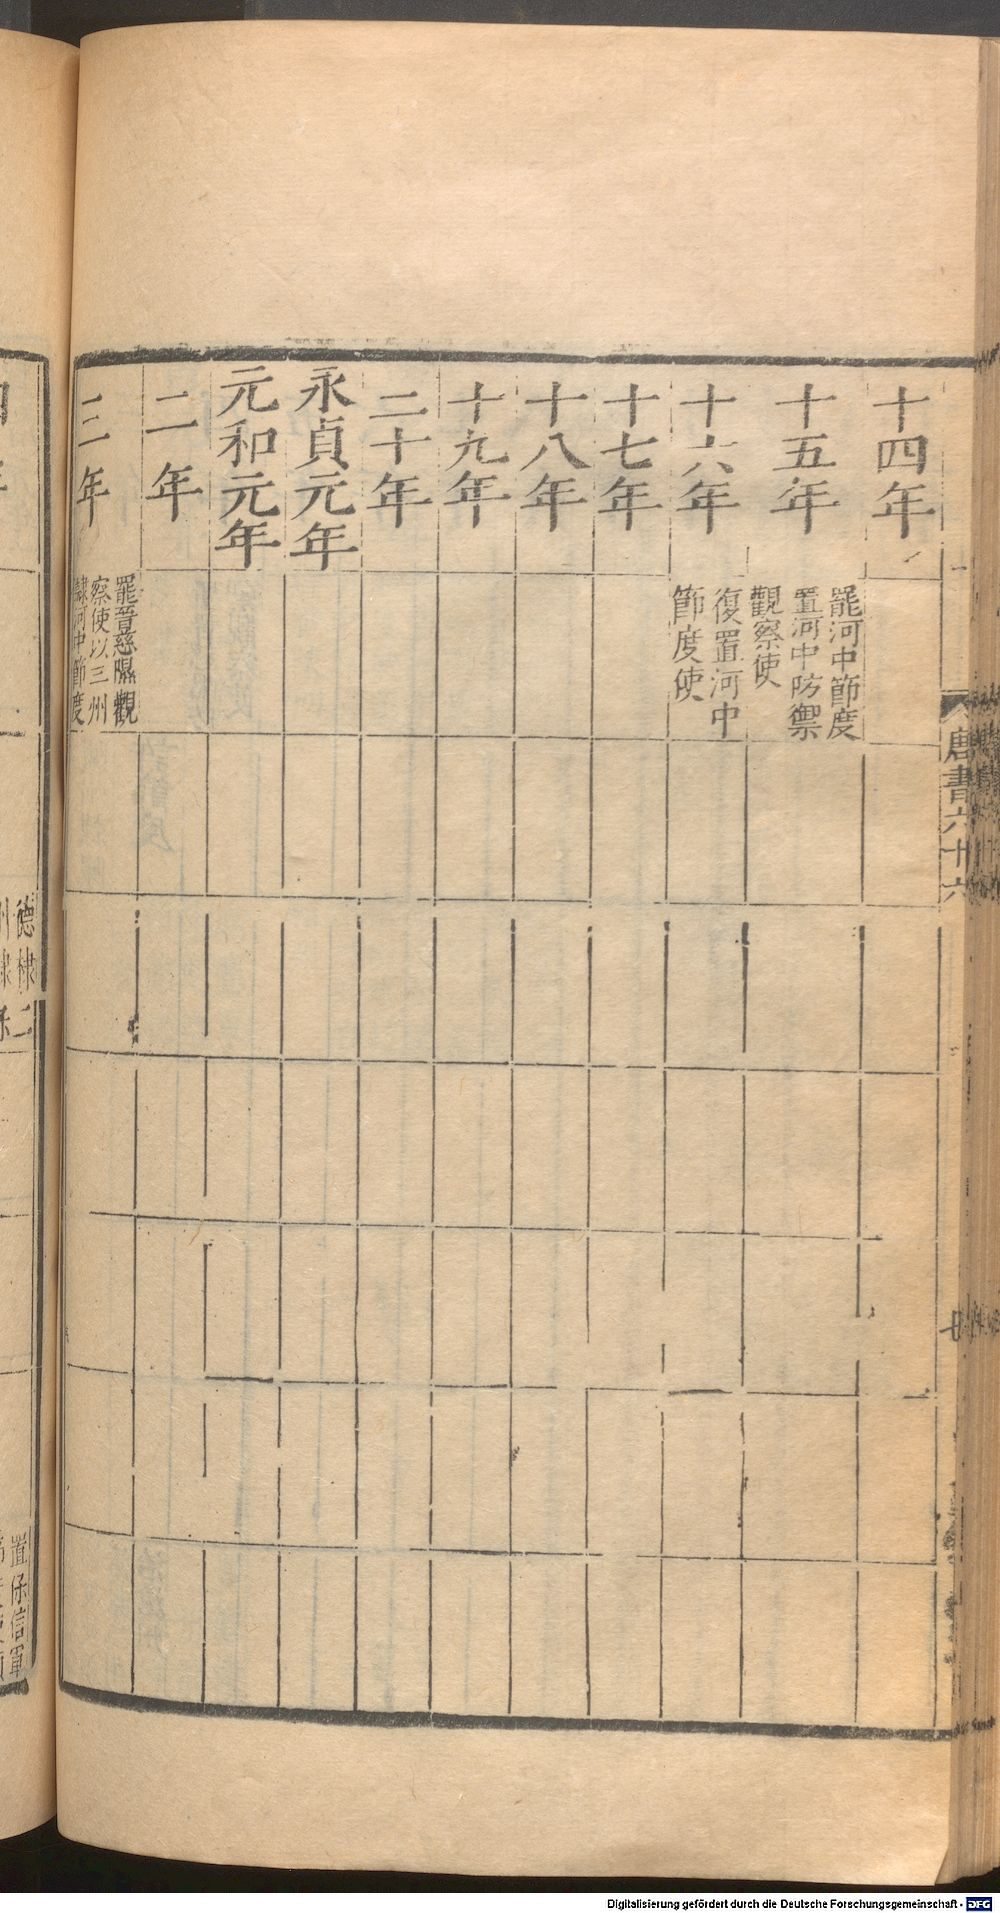 唐書六十六
十四年
十五年
罷河中節度
置河中防禦
觀察使
十六年
復置河中
節度使
十七年
十八年
十九年
二十年
永貞元年
元和元年
二年
三年
罷晉慈隰觀
察使以三州
隸河中節度
德棣二
置保信軍
Digitalisierung gefördert durch die Deutsche Forschungsgemeinschaft - DFG